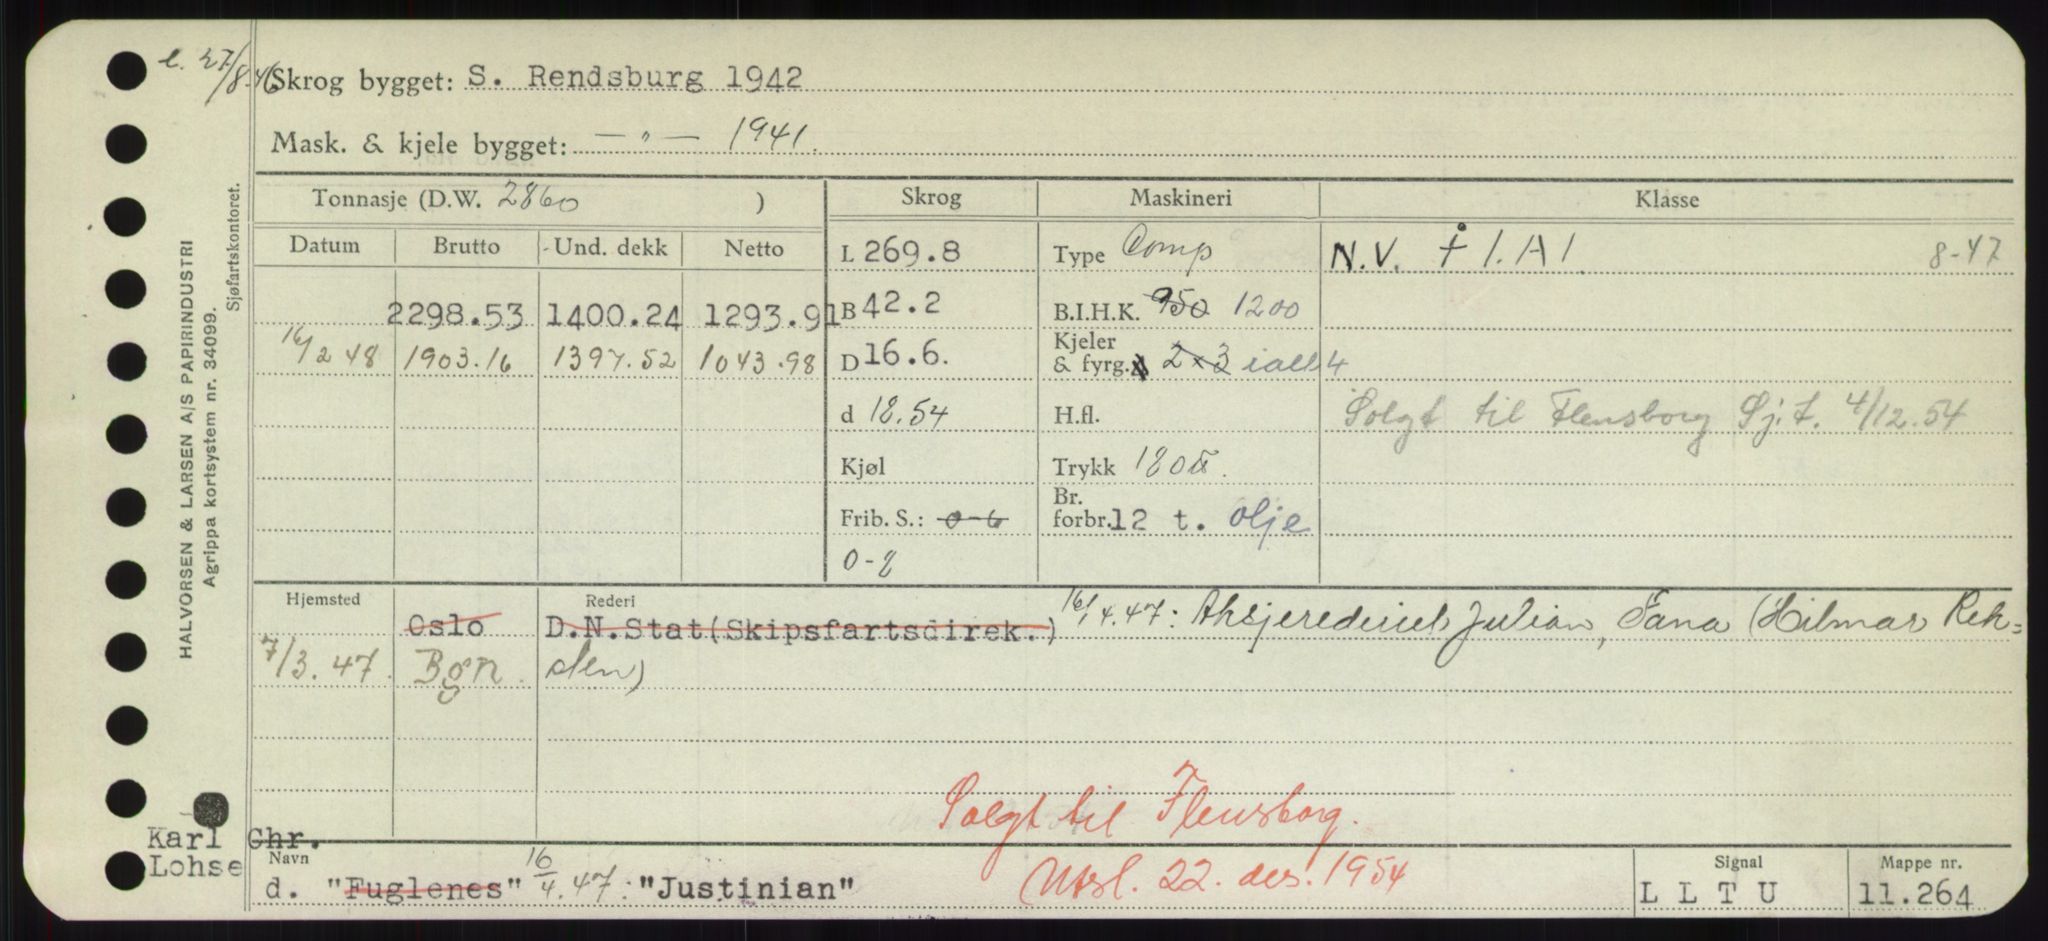 l. 27/8-46
Skrog bygget: S. Rendsburg 1942
Mask. & kjele bygget: — " — 1941.
Tonnasje (D.W. 2860 ) Skrog Maskineri Klasse
Datum Brutto Und. dekk Netto L 269.8 Type Comp N.V. + 1.A1. 8-47
2298.53 1400.24 1293.91 B 42.2 B.I.H.K. 950 1200
16/2 48 1903.16 1397.52 1043.98 D 16.6. Kjeler & fyrg. 2 x 3 ialt 4
d 18.54 H.fl. Solgt til Flensborg Sj.t. 4/12.54
Kjøl Trykk 180
Frib. S.: 0-6 Br. forbr. 12 t. olje
0-8
Hjemsted Rederi
Oslo D.N.Stat(Skipsfartsdirek.) 16/4.47: Aksjerederiet Julian, Fana (Hilmar Rek=
7/3.47. Bgn. sten)
Solgt til Flensborg.
Karl Chr.
Lohse
Navn Signal Mappe nr.
d. "Fuglenes" 16/4.47: "Justinian" Utsl. 22. des. 1954 L L T U 11.264
HALVORSEN & LARSEN A/S PAPIRINDUSTRI
Agrippa kortsystem nr. 34099.
Sjøfartskontoret.